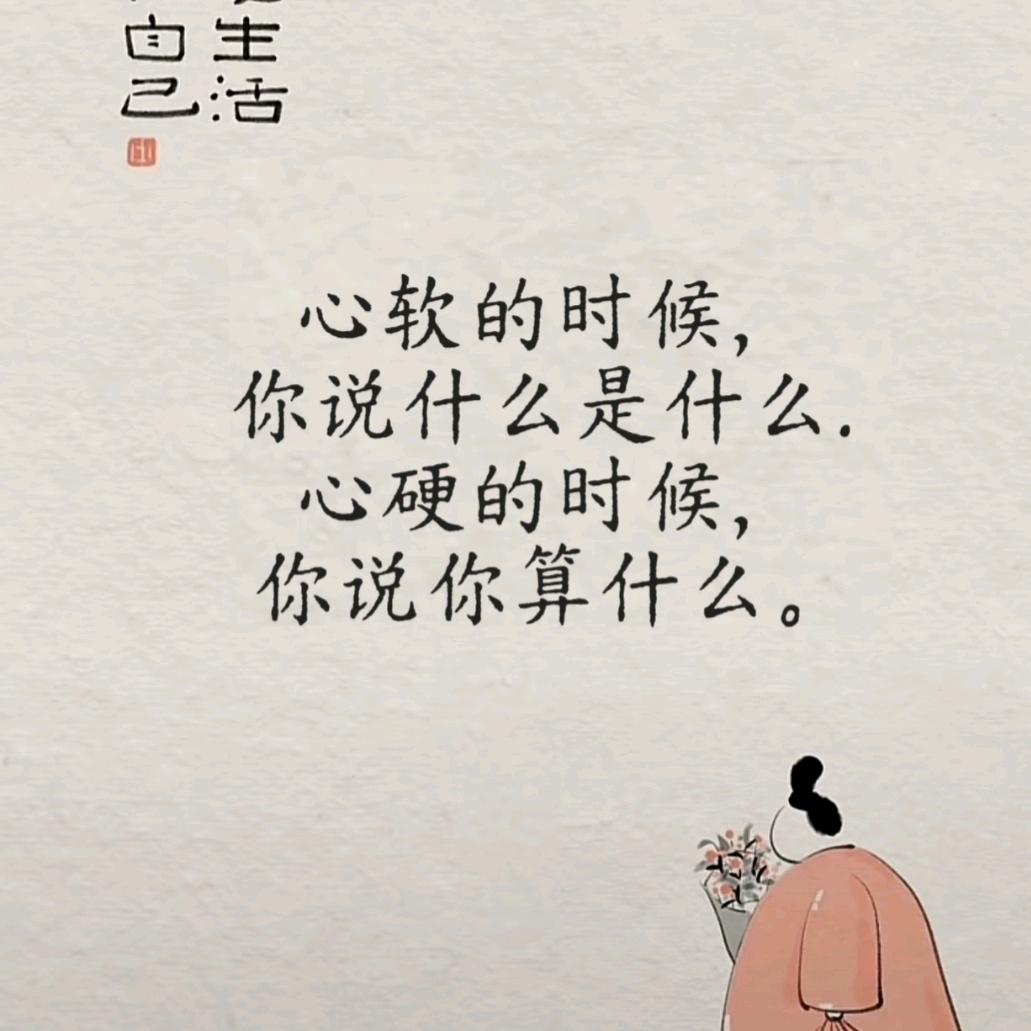 生活
自己
心软的时候,
你说什么是什么.
心硬的时候,
你说你算什么。